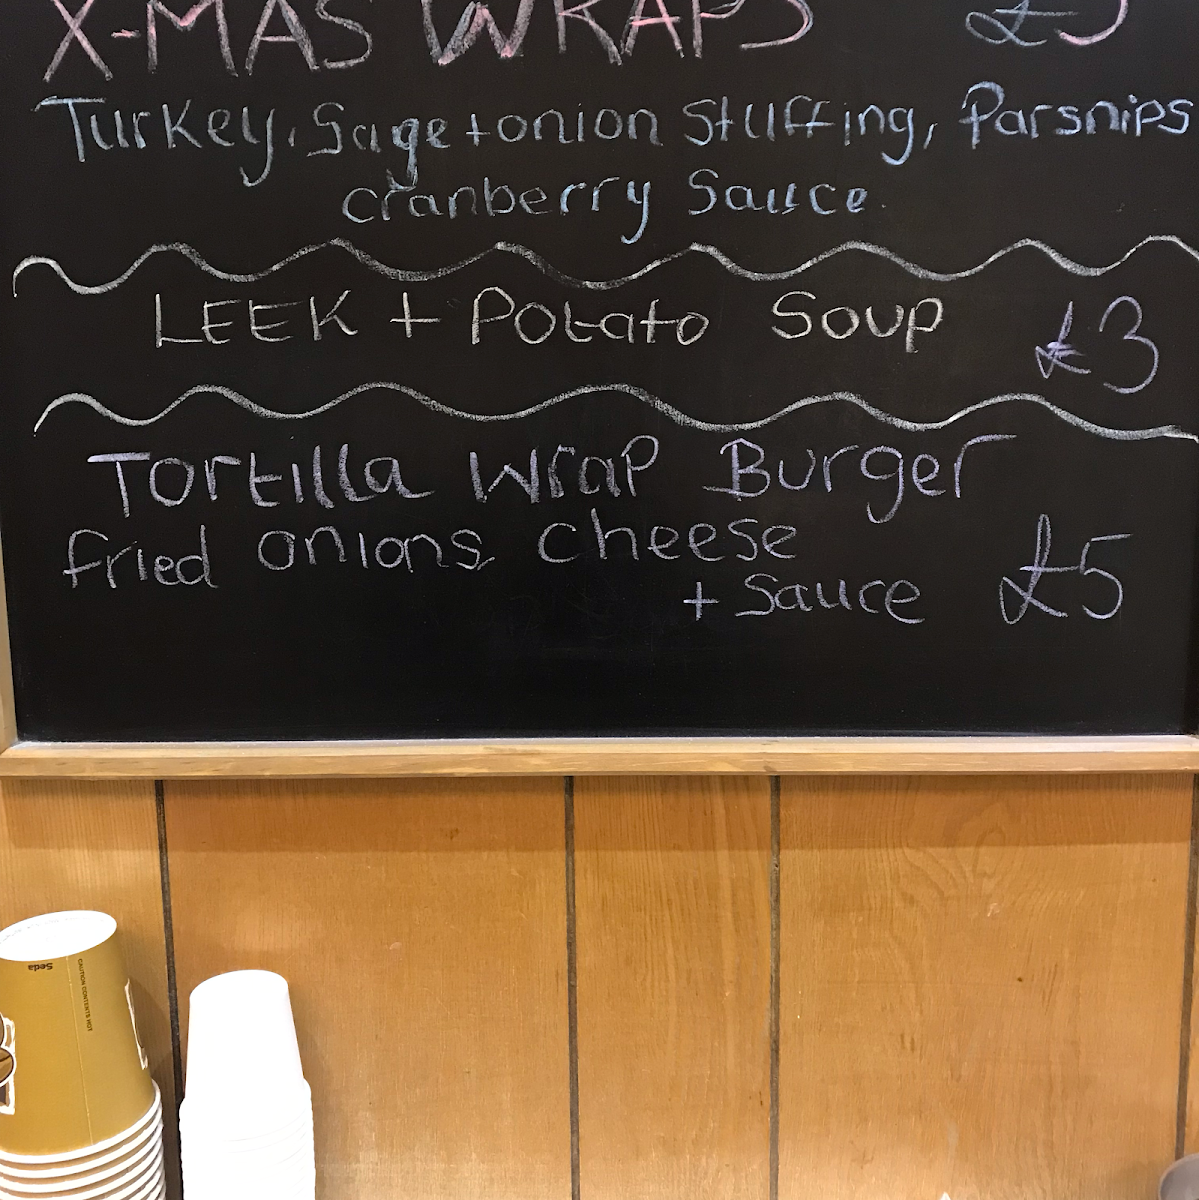 X-MAS WRAPS £5
Turkey, Sage + onion Stuffing, Parsnips
cranberry Sauce
LEEK + Potato Soup £3
Tortilla Wrap Burger
fried onions cheese
+ Sauce £5
Seda
CAUTION CONTENTS HOT